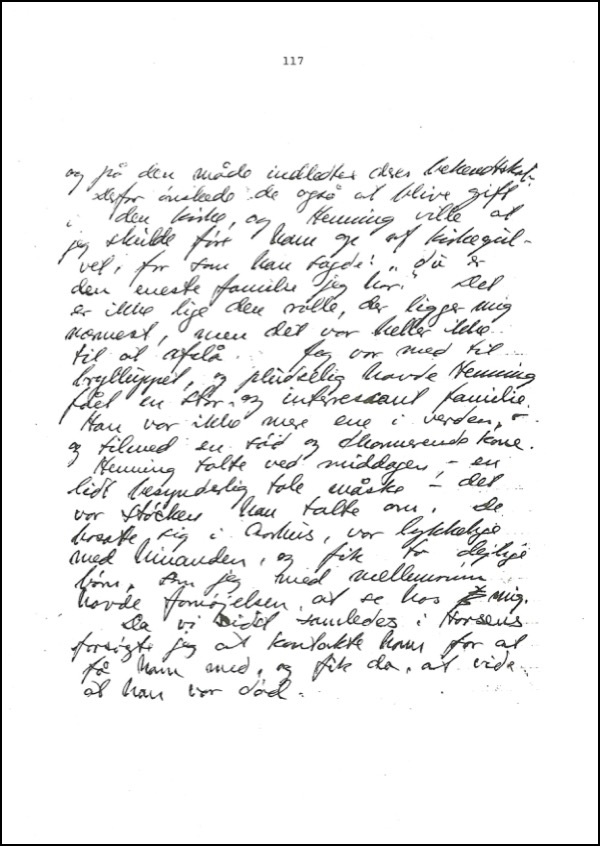 117
og på den måde indledtes deres bekendtskab.
Derfor ønskede de også at blive gift
i den kirke, og Henning ville at
jeg skulde føre ham op af kirkegul-
vet, for som han sagde: „du er
den eneste familie jeg har." Det
er ikke lige den rolle, der ligger mig
nærmest, men det var heller ikke
til at afslå. Jeg var med til
brylluppet, og pludselig havde Henning
fået en stor og interessant familie.
Han var ikke mere ene i verden,
og tilmed en sød og charmerende kone.
Henning talte ved middagen, – en
lidt besynderlig tale måske – det
var støcken han talte om. De
bosatte sig i Århus, var lykkelige
med hinanden, og fik to dejlige
børn, som jeg med mellemrum
havde fornøjelsen at se hos mig.
Da vi sidst samledes i Horsens
forsøgte jeg at kontakte ham for at
få ham med, og fik da at vide
at han var død.